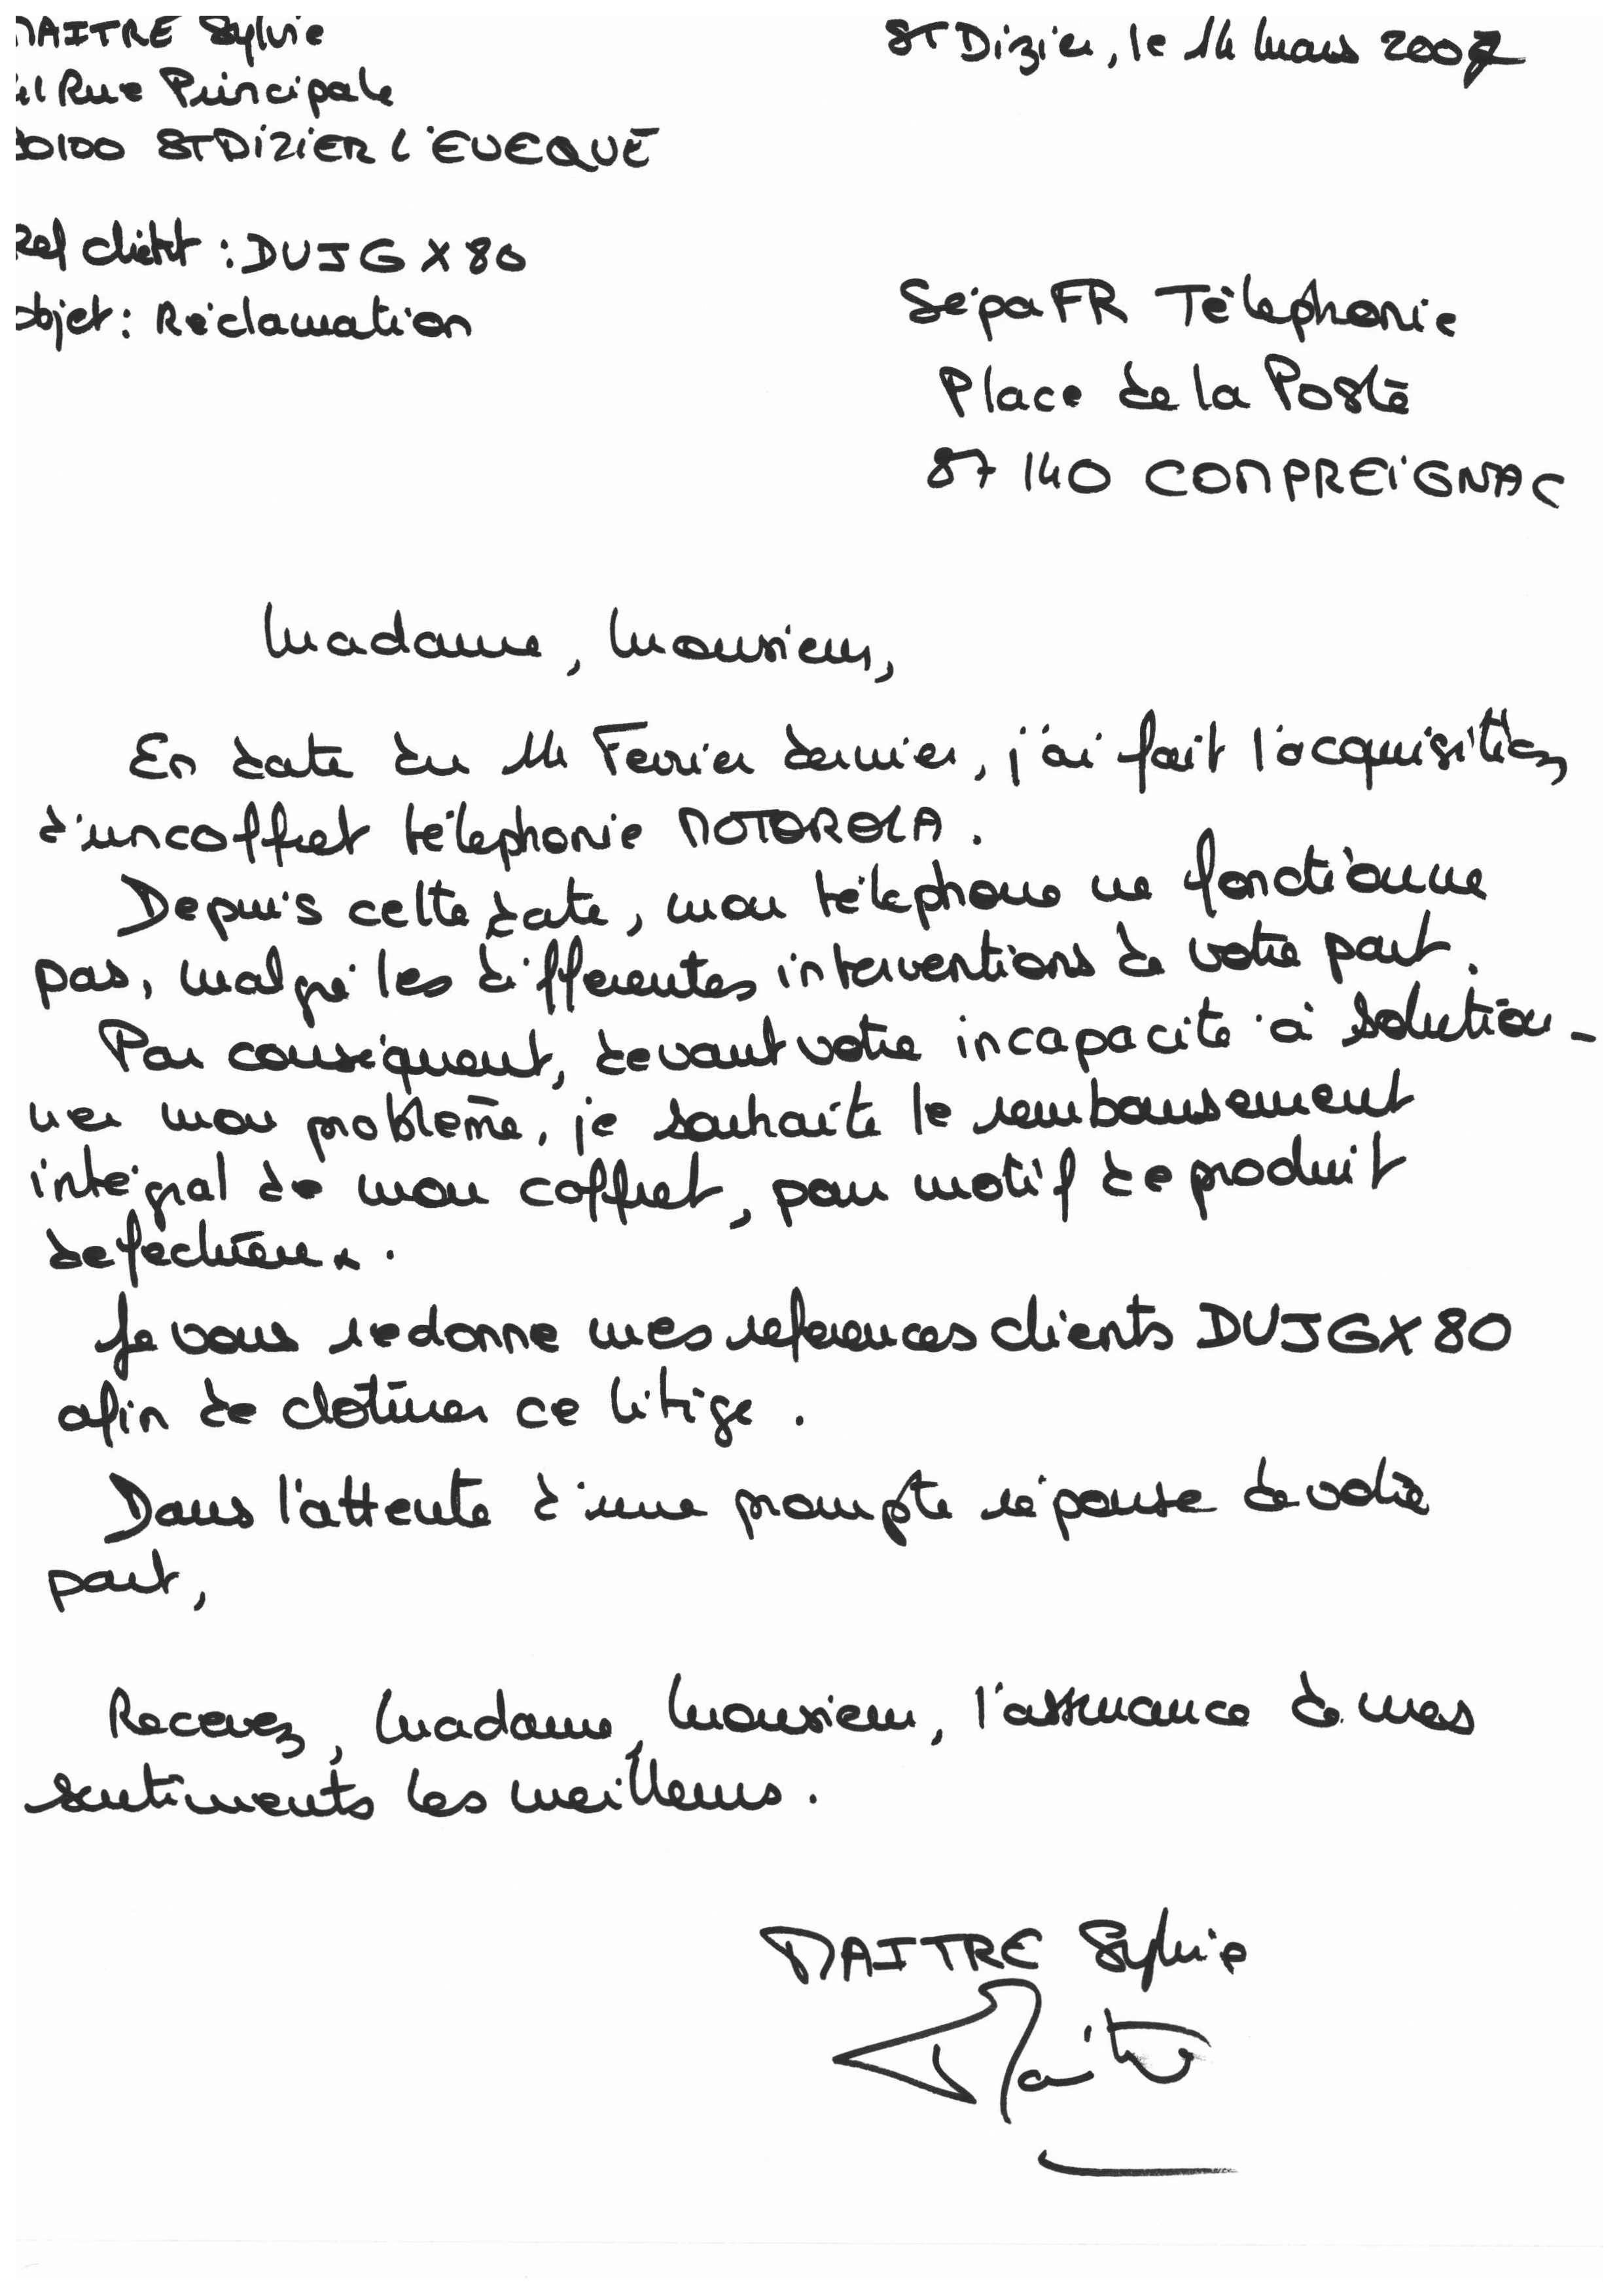 MAITRE Sylvie
St Dizier, le 14 Mars 2007
Rue Principale
ST DIZIER L'EVEQUE
Ref client : DUJGX80
objet : Réclamation
SépaFR Téléphonie
Place de la Poste
87140 COMPREIGNAC
Madame, Monsieur,
En date du 14 Fevrier dernier, j'ai fait l'acquisition
d'un coffret téléphonie MOTOROLA.
Depuis cette date, mon téléphone ne fonctionne
pas, malgré les différentes interventions de votre part.
Par conséquent, devant votre incapacité à solution-
ner mon problème, je souhaite le remboursement
intégral de mon coffret, pour motif de produit
defectueux.
Je vous redonne mes references clients DUJGX80
afin de clôturer ce litige.
Dans l'attente d'une prompte réponse de votre
part,
Recevez, Madame, Monsieur, l'assurance de mes
sentiments les meilleurs.
MAITRE Sylvie
Maitre